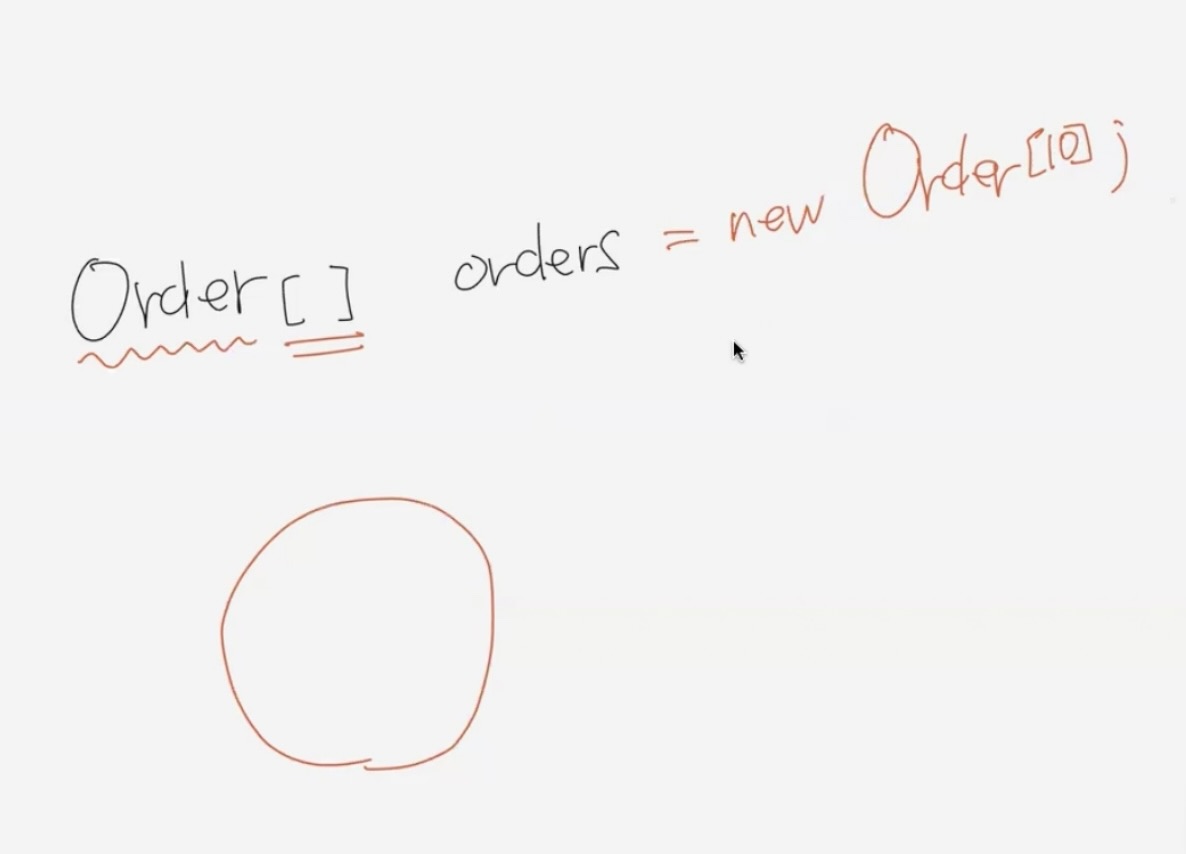 Order[] orders = new Order[10];